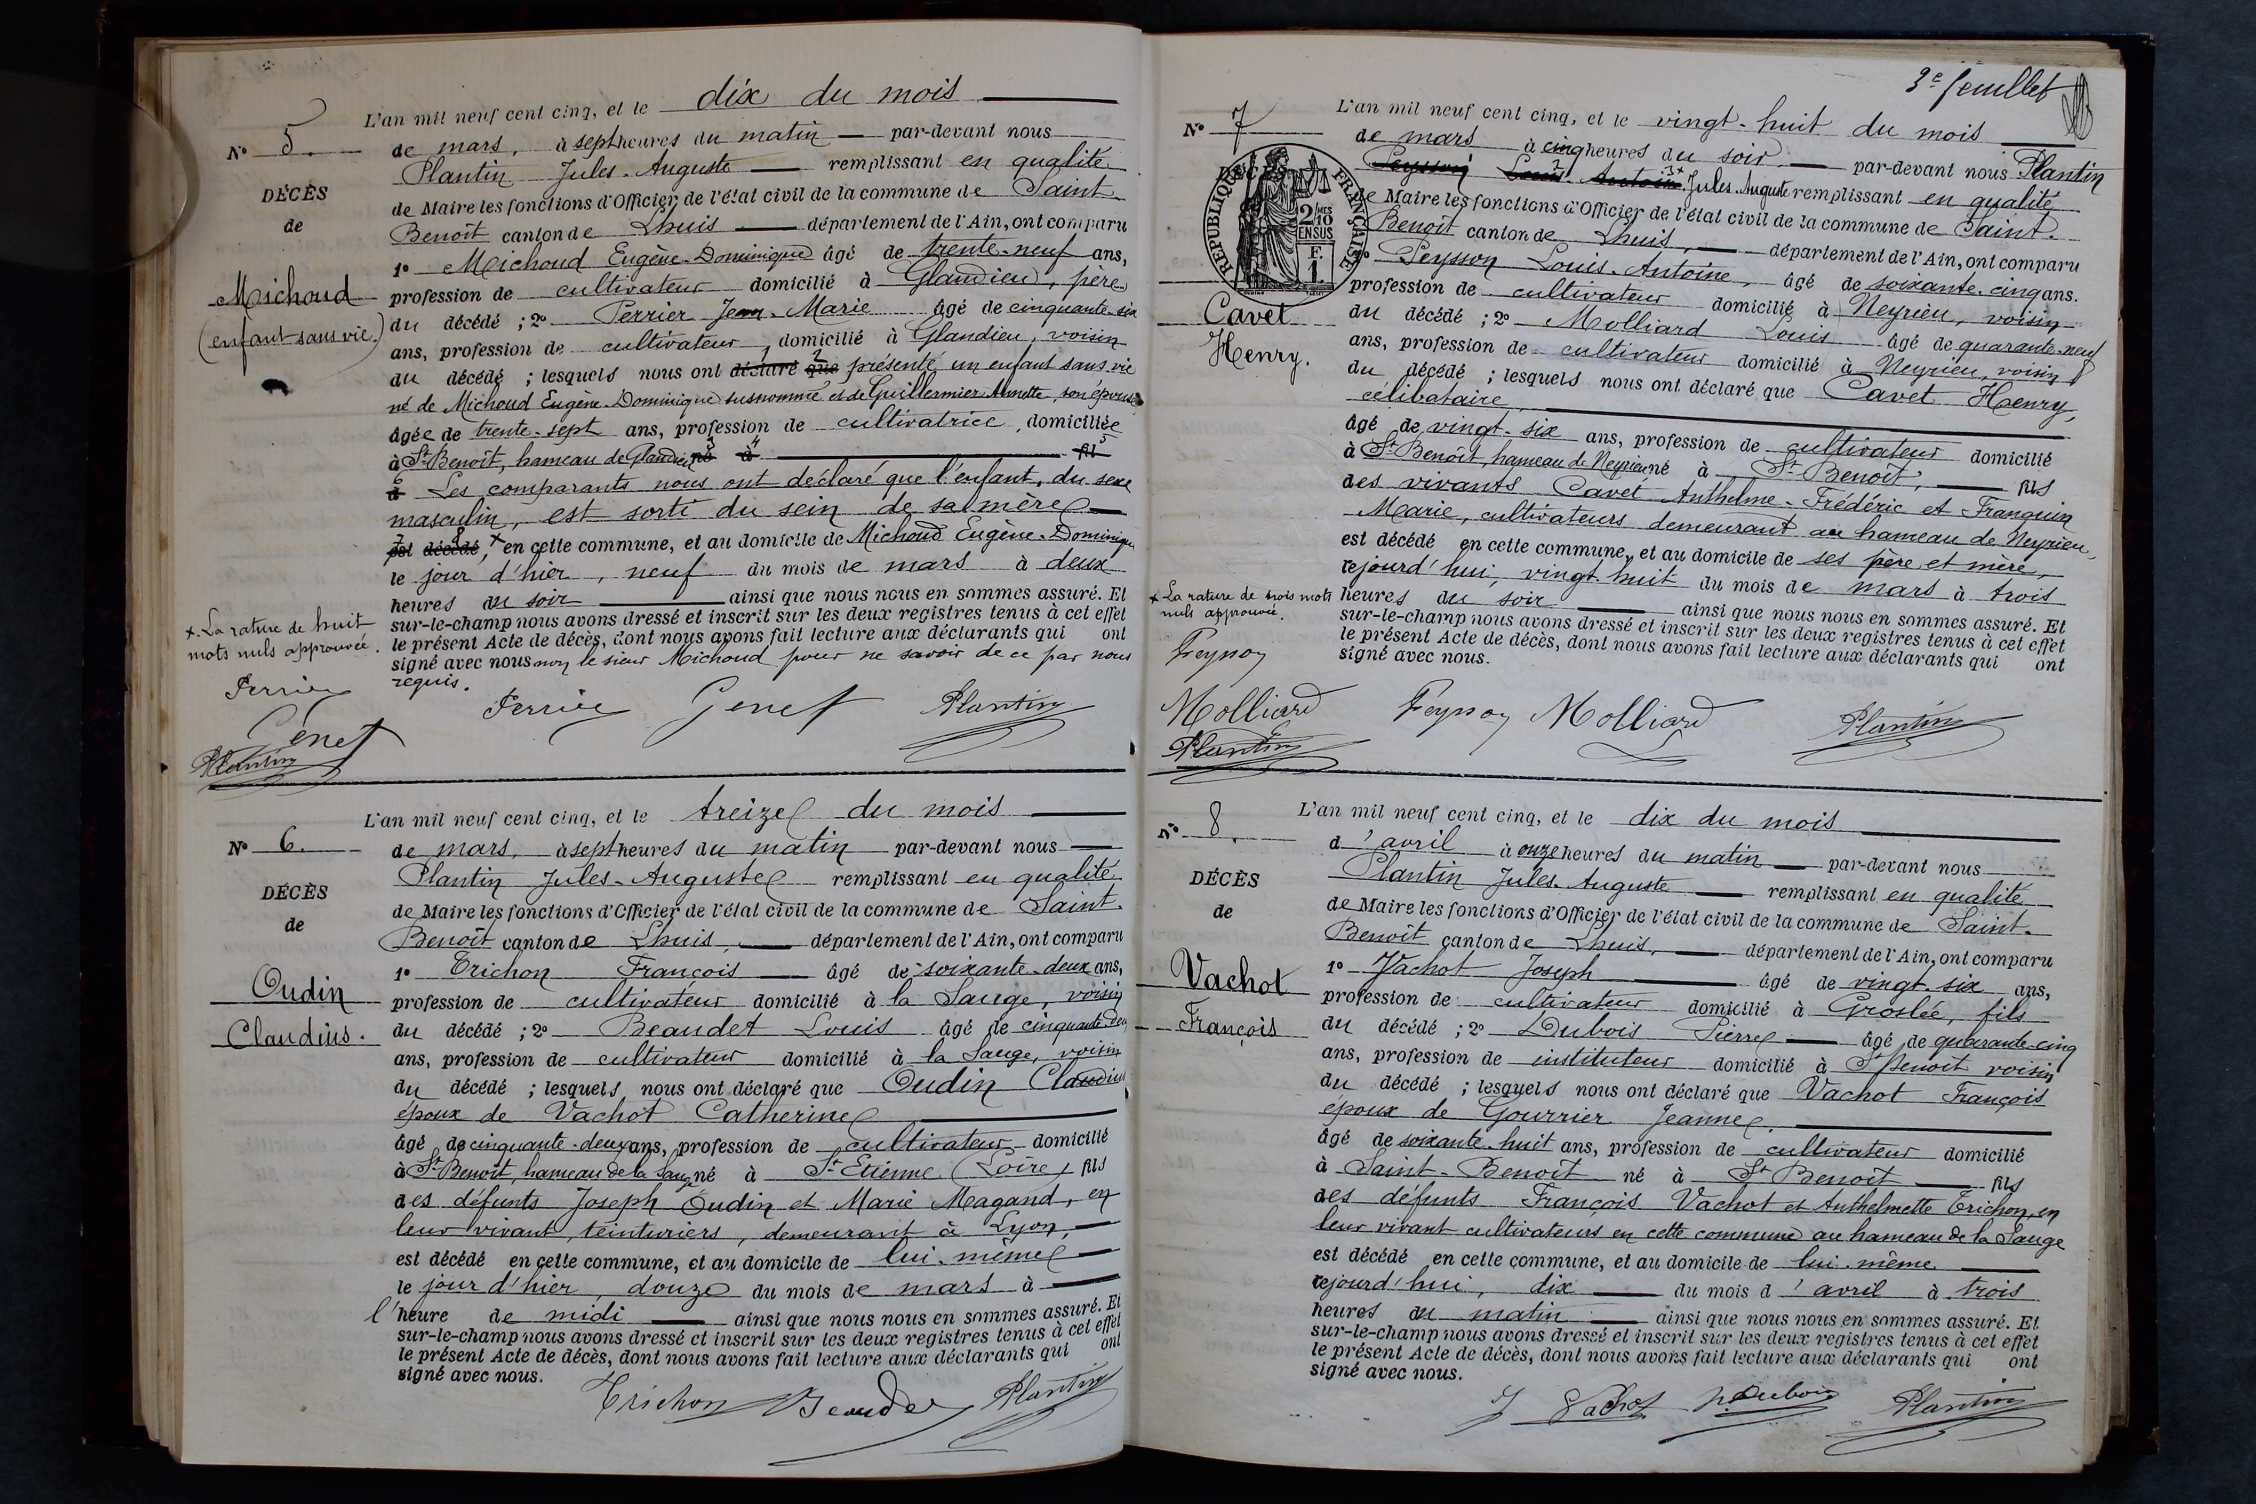 L'an mil neuf cent cinq, et le dix du mois
N° 5. de mars, à sept heures du matin par-devant nous
Plantin Jules-Auguste remplissant en qualité
DÉCÈS
de Maire les fonctions d'Officier de l'état civil de la commune de Saint-
de
Benoît canton de Lhuis département de l'Ain, ont comparu
1° Michoud Eugène-Dominique âgé de trente-neuf ans,
Michoud
profession de cultivateur domicilié à Glandieu, père
(enfant sans vie.)
du décédé ; 2° Perrier Jean-Marie âgé de cinquante-six
ans, profession de cultivateur, domicilié à Glandieu, voisin
du décédé ; lesquels nous ont déclaré que présenté un enfant sans vie
né de Michoud Eugène-Dominique susnommé et de Guillermier Annette, son épouse
âgée de trente-sept ans, profession de cultivatrice, domiciliée
à St Benoît, hameau de Glandieu né à fils
d Les comparants nous ont déclaré que l'enfant, du sexe
masculin, est sorti du sein de sa mère
est décédé, en cette commune, et au domicile de Michoud Eugène-Dominique
le jour d'hier, neuf du mois de mars à deux
heures du soir ainsi que nous nous en sommes assuré. Et
sur-le-champ nous avons dressé et inscrit sur les deux registres tenus à cet effet
le présent Acte de décès, dont nous avons fait lecture aux déclarants qui ont
signé avec nous non le sieur Michoud pour ne savoir de ce par nous
requis.
x La rature de huit
mots nuls approuvée.
Perrier
Genet
Plantin
Perrier Genet Plantin
L'an mil neuf cent cinq, et le treize du mois
N° 6. de mars, à sept heures du matin par-devant nous
Plantin Jules-Auguste remplissant en qualité
DÉCÈS
de Maire les fonctions d'Officier de l'état civil de la commune de Saint-
de
Benoît canton de Lhuis, département de l'Ain, ont comparu
1° Trichon François âgé de soixante-deux ans,
Oudin
profession de cultivateur domicilié à la Sauge, voisin
Claudius.
du décédé ; 2° Beaudet Louis âgé de cinquante-deux
ans, profession de cultivateur domicilié à la Sauge, voisin
du décédé ; lesquels nous ont déclaré que Oudin Claudius
époux de Vachot Catherine
âgé de cinquante-deux ans, profession de cultivateur domicilié
à St Benoît, hameau de la Sauge né à St Etienne (Loire) fils
des défunts Joseph Oudin et Marie Magand, en
leur vivant, teinturiers, demeurant à Lyon,
est décédé en cette commune, et au domicile de lui-même
le jour d'hier, douze du mois de mars à
l'heure de midi ainsi que nous nous en sommes assuré. Et
sur-le-champ nous avons dressé et inscrit sur les deux registres tenus à cet effet
le présent Acte de décès, dont nous avons fait lecture aux déclarants qui ont
signé avec nous.
Trichon Beaudet Plantin
3e feuillet
L'an mil neuf cent cinq, et le vingt-huit du mois
N° 7
de mars à cinq heures du soir par-devant nous Plantin
Peysson Louis Antoine Jules-Auguste remplissant en qualité
de Maire les fonctions d'Officier de l'état civil de la commune de Saint-
Benoît canton de Lhuis, département de l'Ain, ont comparu
REPUBLIQUE FRANÇAISE
2/10 MES
EN SUS
F.
1.
1° Peysson Louis-Antoine, âgé de soixante-cinq ans.
profession de cultivateur domicilié à Neyrieu, voisin
Cavet
Henry.
du décédé ; 2° Molliard Louis âgé de quarante-neuf
ans, profession de cultivateur domicilié à Neyrieu, voisin
du décédé ; lesquels nous ont déclaré que Cavet Henry,
célibataire,
âgé de vingt-six ans, profession de cultivateur domicilié
à St Benoît, hameau de Neyrieu né à St Benoît, fils
des vivants Cavet Anthelme-Frédéric et Franquin
Marie, cultivateurs demeurant au hameau de Neyrieu,
est décédé en cette commune, et au domicile de ses père et mère,
cejourd'hui, vingt-huit du mois de mars à trois
heures du soir ainsi que nous nous en sommes assuré. Et
sur-le-champ nous avons dressé et inscrit sur les deux registres tenus à cet effet
le présent Acte de décès, dont nous avons fait lecture aux déclarants qui ont
signé avec nous.
x La rature de trois mots
nuls approuvée.
Peysson
Molliard
Plantin
Peysson Molliard Plantin
L'an mil neuf cent cinq, et le dix du mois
N° 8.
d'avril à onze heures du matin par-devant nous
Plantin Jules-Auguste remplissant en qualité
DÉCÈS
de Maire les fonctions d'Officier de l'état civil de la commune de Saint-
de
Benoît canton de Lhuis, département de l'Ain, ont comparu
1° Vachot Joseph âgé de vingt-six ans,
Vachot
profession de cultivateur domicilié à Groslée, fils
François
du décédé ; 2° Dubois Pierre âgé de quarante-cinq
ans, profession de instituteur domicilié à St Benoit voisin
du décédé ; lesquels nous ont déclaré que Vachot François
époux de Gourrier Jeanne.
âgé de soixante-huit ans, profession de cultivateur domicilié
à Saint-Benoît né à St Benoît fils
des défunts François Vachot et Anthelmette Trichon, en
leur vivant cultivateurs en cette commune au hameau de la Sauge
est décédé en cette commune, et au domicile de lui-même
cejourd'hui, dix du mois d'avril à trois
heures du matin ainsi que nous nous en sommes assuré. Et
sur-le-champ nous avons dressé et inscrit sur les deux registres tenus à cet effet
le présent Acte de décès, dont nous avons fait lecture aux déclarants qui ont
signé avec nous.
J Vachot P. Dubois Plantin